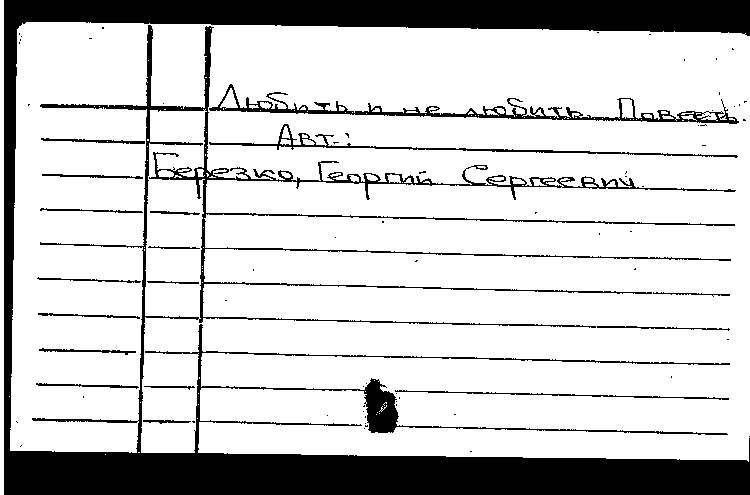 Любить и не любить. Повесть.
Авт.:
Березко, Георгий Сергеевич